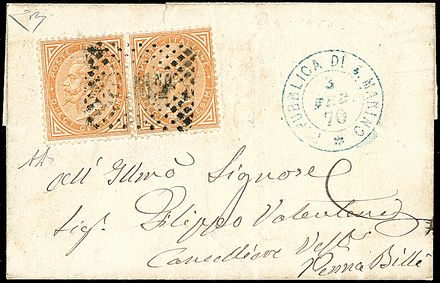 POSTE ITALIANE
REPUBBLICA DI S. MARINO
3
FEB
70
All' Illmo Signore
Sigr. Filippo Valentini
Cancelliere Vesc.
Penna Billi